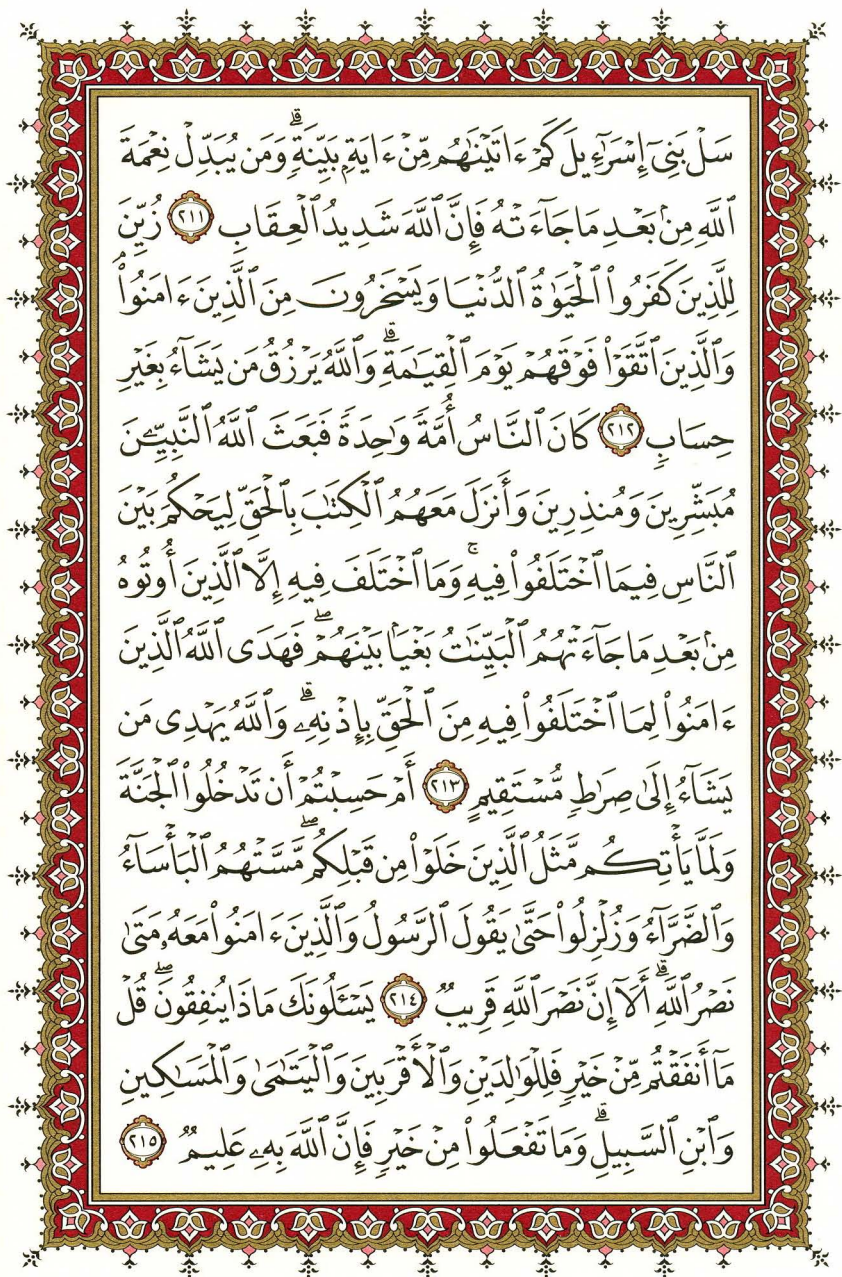 سَلْ بَنِىٓ إِسْرَٰٓءِيلَ كَمْ ءَاتَيْنَٰهُم مِّنْ ءَايَةٍۭ بَيِّنَةٍۗ وَمَن يُبَدِّلْ نِعْمَةَ
ٱللَّهِ مِنۢ بَعْدِ مَا جَآءَتْهُ فَإِنَّ ٱللَّهَ شَدِيدُ ٱلْعِقَابِ ٢١١ زُيِّنَ
لِلَّذِينَ كَفَرُوا۟ ٱلْحَيَوٰةُ ٱلدُّنْيَا وَيَسْخَرُونَ مِنَ ٱلَّذِينَ ءَامَنُوا۟ۘ
وَٱلَّذِينَ ٱتَّقَوْا۟ فَوْقَهُمْ يَوْمَ ٱلْقِيَٰمَةِۗ وَٱللَّهُ يَرْزُقُ مَن يَشَآءُ بِغَيْرِ
حِسَابٍ ٢١٢ كَانَ ٱلنَّاسُ أُمَّةً وَٰحِدَةً فَبَعَثَ ٱللَّهُ ٱلنَّبِيِّۦنَ
مُبَشِّرِينَ وَمُنذِرِينَ وَأَنزَلَ مَعَهُمُ ٱلْكِتَٰبَ بِٱلْحَقِّ لِيَحْكُمَ بَيْنَ
ٱلنَّاسِ فِيمَا ٱخْتَلَفُوا۟ فِيهِۚ وَمَا ٱخْتَلَفَ فِيهِ إِلَّا ٱلَّذِينَ أُوتُوهُ
مِنۢ بَعْدِ مَا جَآءَتْهُمُ ٱلْبَيِّنَٰتُ بَغْيًۢا بَيْنَهُمْۖ فَهَدَى ٱللَّهُ ٱلَّذِينَ
ءَامَنُوا۟ لِمَا ٱخْتَلَفُوا۟ فِيهِ مِنَ ٱلْحَقِّ بِإِذْنِهِۦۗ وَٱللَّهُ يَهْدِى مَن
يَشَآءُ إِلَىٰ صِرَٰطٍ مُّسْتَقِيمٍ ٢١٣ أَمْ حَسِبْتُمْ أَن تَدْخُلُوا۟ ٱلْجَنَّةَ
وَلَمَّا يَأْتِكُم مَّثَلُ ٱلَّذِينَ خَلَوْا۟ مِن قَبْلِكُمۖ مَّسَّتْهُمُ ٱلْبَأْسَآءُ
وَٱلضَّرَّآءُ وَزُلْزِلُوا۟ حَتَّىٰ يَقُولَ ٱلرَّسُولُ وَٱلَّذِينَ ءَامَنُوا۟ مَعَهُۥ مَتَىٰ
نَصْرُ ٱللَّهِۗ أَلَآ إِنَّ نَصْرَ ٱللَّهِ قَرِيبٌ ٢١٤ يَسْـَٔلُونَكَ مَاذَا يُنفِقُونَۖ قُلْ
مَآ أَنفَقْتُم مِّنْ خَيْرٍ فَلِلْوَٰلِدَيْنِ وَٱلْأَقْرَبِينَ وَٱلْيَتَٰمَىٰ وَٱلْمَسَٰكِينِ
وَٱبْنِ ٱلسَّبِيلِۗ وَمَا تَفْعَلُوا۟ مِنْ خَيْرٍ فَإِنَّ ٱللَّهَ بِهِۦ عَلِيمٌ ٢١٥